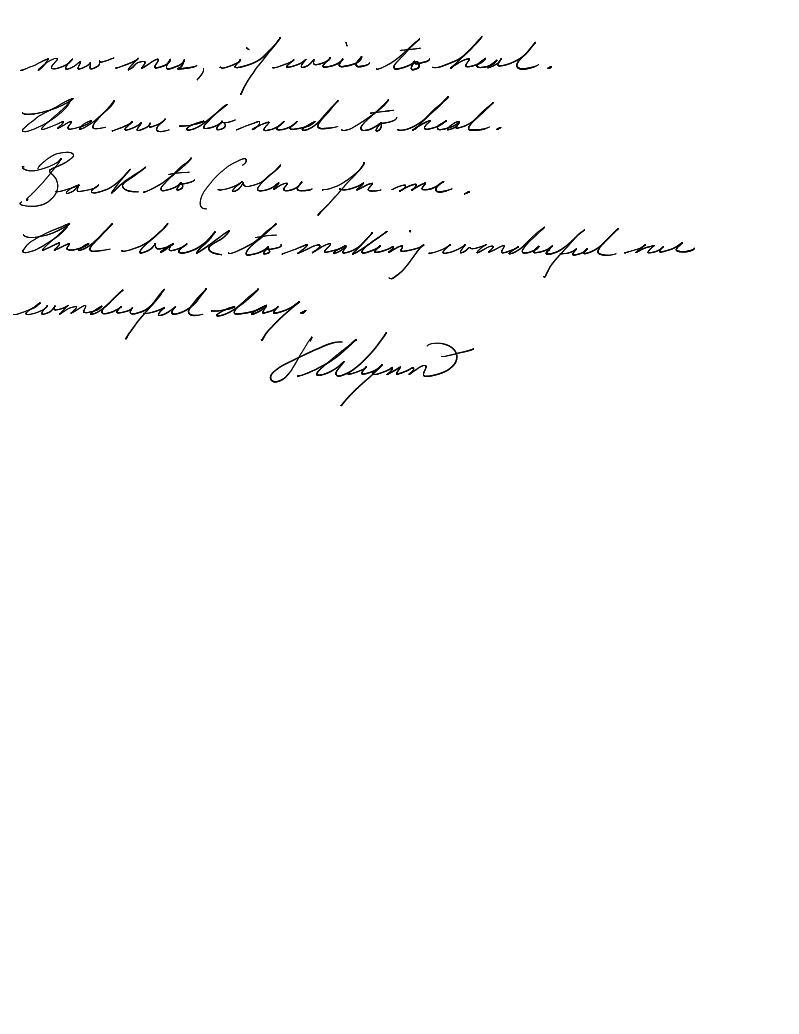 new ones, if we're to heal.
And we do need to heal.
Back to Colne for me.
And back to making wonderful
wonderful day.
KWynn